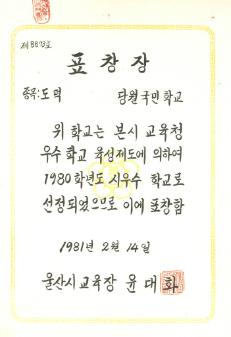 제8873호
표창장
종목:도덕 당월국민학교
위 학교는 본시 교육청
우수학교 육성제도에 의하여
1980학년도 시우수 학교로
선정되었으므로 이에 표창함
1981년 2월 14일
울산시교육장 윤대화